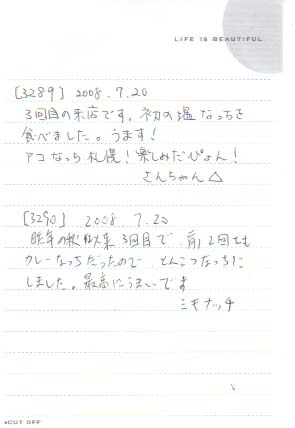 LIFE IS BEAUTIFUL
[3289] 2008.7.20
3回目の来店です。初の塩なっちを
食べました。うます!
アコなっち札幌!楽しみだぴょん!
さんちゃん△
[3290] 2008.7.20
昨年の秋以来3回目で、前2回とも
カレーなっちだったので とんこつなっちに
しました。最高にうまいです
ミキナッチ
CUT OFF